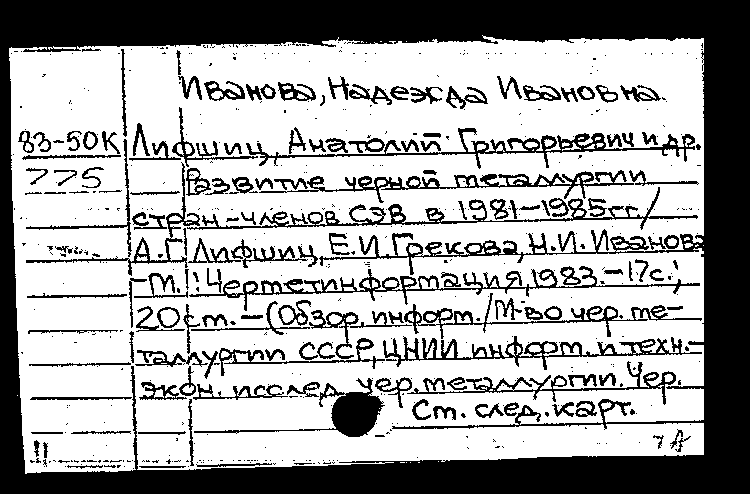 Иванова, Надежда Ивановна.
83-50К Лифшиц, Анатолий Григорьевич и др.
775 Развитие черной металлургии
стран-членов СЭВ в 1981-1985гг. /
А.Г. Лифшиц, Е.И. Грекова, Н.И. Иванова
-М. : Черметинформация, 1983.-17с.;
20см. - (Обзор. информ. / М-во чер. ме-
таллургии СССР, ЦНИИ информ. и техн.-
экон. исслед. чер. металлургии. Чер.
См. след. карт.